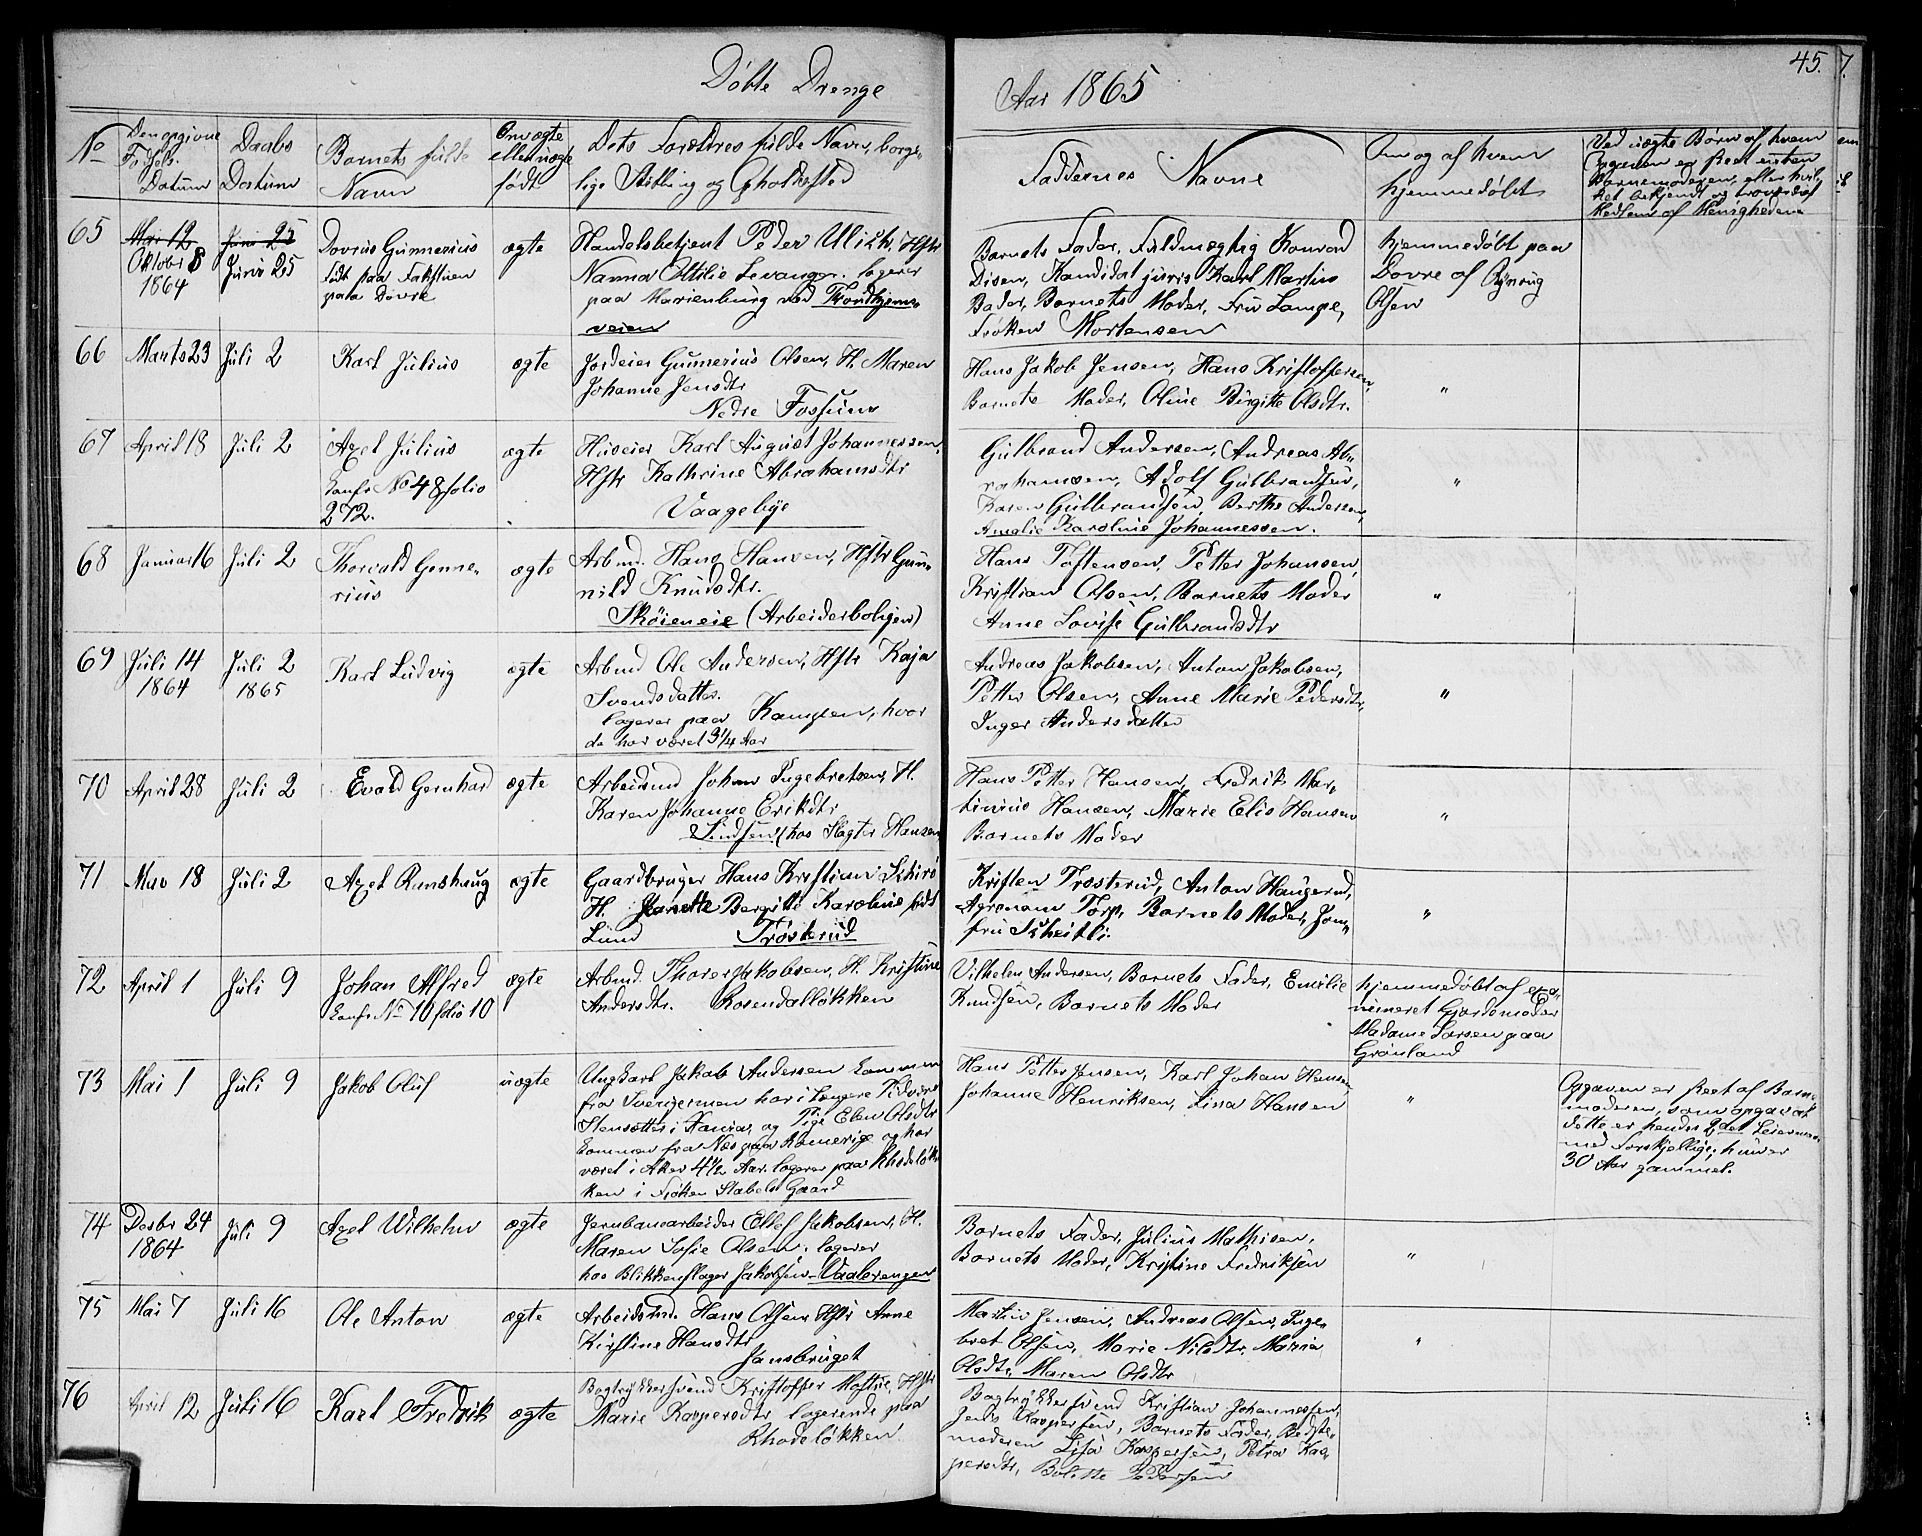 Døbte Drenge
Aar 1865
45. 7.
No
Den opgivne Fødsels- Datum
Daabs Datum
Barnets fulde Navn
Om ægte eller uægte født
Dets Forældres fulde Navn, borgerlige Stilling og Opholdssted
Faddernes Navne
Om og af hvem hjemmedøbt
Ved uægte Børn af hvem Opgaven er skeet enten Barnemoderen, eller hvilket bekjendt og troværdigt Medlem af Menigheden
65
Mai 12
Oktober 8
1864
Juni 25
Juni 25
Dovrius Gunnerius
født paa Fokstuen
paa Dovre
ægte
Handelsbetjent Peder Ulich, Hstr
Nanna Ottilie Levanger. logerer
paa Marienburg ved Trondhjems-
veien
Barnets Fader, Fuldmægtig Konrad
Disen, Kandidat juris Karl Martin
Bader, Barnets Moder, Fru Lampe,
Frøken Mortensen
hjemmedøbt paa
Dovre af
Olsen
66
Marts 23
Juli 2
Karl Julius
ægte
Jordeier Gunnerius Olsen, H. Maren
Johanne Jensdtr
Nedre Fossum
Hans Jakob Jensen, Hans Kristoffersen,
Barnets Moder, Oline Birgitte Olsdtr.
"
67
April 18
Juli 2
Axel Julius
Confr No 48 folio
272.
ægte
Huseier Karl August Johannessen,
Hstr Kathrine Abrahamsdtr
Vaagebye
Gulbrand Andersen, Andreas Ab-
rahamsen, Adolf Gulbrandsen,
Karen Gulbrandsen, Berthe Andersen,
Amalie Karoline Johannessen.
"
68
Januar 16
Juli 2
Thorvald Gunne-
rius
ægte
Arbmd. Hans Hansen, Hstr Gun-
nild Knudsdtr.
Skøieneie (Arbeiderboligen)
Hans Toftensen, Petter Johansen,
Kristian Olsen, Barnets Moder
Anne Lovise Gulbrandsdtr
"
69
Juli 14
1864
Juli 2
1865
Karl Ludvig
ægte
Arbmd Ole Andersen, Hstr Kaja
Svendsdatter.
logerer paa Kampen, hvor
de har været 3 1/4 Aar
Andreas Jakobsen, Anton Jakobsen,
Petter Olsen, Anne Marie Pedersdtr,
Inger Andersdatter
"
70
April 28
Juli 2
Evald Gernhard
ægte
Arbeidsmd Johan Ingebretsen, H.
Karen Johanne Eriksdtr
(hos Slagter Hansen
Hans Petter Hansen, Fredrik Mar-
tinius Hansen, Marie Elis Hansen
Barnets Moder
"
71
Mai 18
Juli 2
Axel Ranshaug
ægte
Gaardbruger Hans Kristian
H. Jeanette Bergitte Karoline født
Lund Trøsterud
Kristen Trosterud, Anton Haugerud,
Agronom Torp, Barnets Moder, Jom-
fru Scheitli.
"
72
April 1
Juli 9
Johan Alfred
Confr No 10 folio 10
ægte
Arbmd. Thorer Jakobsen, H. Kristine
Andersdtr. Rosendalløkken
Vilhelm Andersen, Barnets Fader, Emilie
Knudsen, Barnets Moder
hjemmedøbt af exa-
mineret Gjordemoder
Madame Larsen paa
Grønland
73
Mai 1
Juli 9
Jakob Oluf
uægte
Ungkarl Jakob Andersen kommen
fra Sverige men har i længere Tid været
i Xania, og Pige Elen Olsdtr
kommen fra Næs paa Romerige og har
været i Aker 4 1/2 Aar. logerer paa Rhodeløk-
ken i Frøken Stabels Gaard
Hans Petter Jensen, Karl Johan Hansen,
Johanne Henriksen, Lina Hansen
"
Opgaven er skeet af Barne-
moderen, som opgav at
dette er hendes 2det Leiermaal
med forskjellige; hun er
30 Aar gammel.
74
Desbr 24
1864
Juli 9
Axel Wilhelm
ægte
Jernbanearbeider Ellef Jakobsen, H.
Maren Sofie Olsen. logerer
hos Blikkenslager Jakobsen. Vaalerengen
Barnets Fader, Julius Mathisen,
Barnets Moder, Kristine Fredriksen
"
75
Mai 7
Juli 16
Ole Anton
ægte
Arbeidsmd. Hans Olsen, Hstr Anne
Kirstine Hansdtr
Jansbruget
Martin Jensen, Andreas Olsen, Inge-
bret Olsen, Marie Nilsdtr, Maria
Olsdtr, Maren Olsdtr
"
76
April 12
Juli 16
Karl Fredrik
ægte
Bogtrykkersvend Kristoffer Hstr
Marie Kaspersdtr logerende paa
Rhodeløkken.
Bogtrykkersvend Kristian Johannessen,
Jens Kaspersen, Barnets Fader, Bedste-
moderen Lisa Kaspersen, Petra Kas-
persdtr, Bolette Pedersen